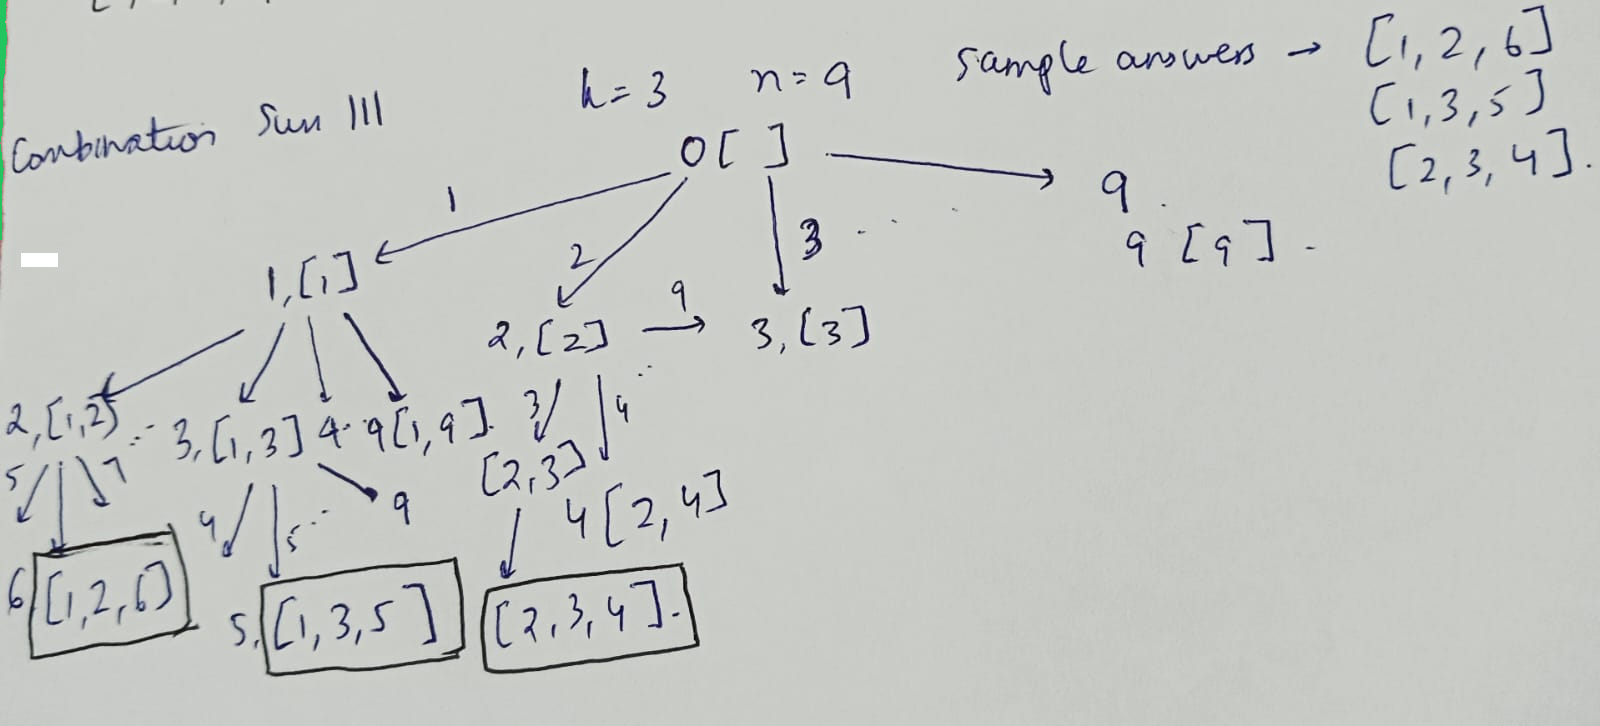 Combination Sum III
k=3 n=9
Sample answers → [1,2,6]
[1,3,5]
[2,3,4].
0[ ]
1
2
3
9.
9 [9].
1,[1]
2,[2]
9
3,[3]
2,[1,2]
3,[1,3]
4..9[1,9].
3
4
5
7
4
5
9
[2,3]
4[2,4]
6 [1,2,6]
5,[1,3,5]
[2,3,4].